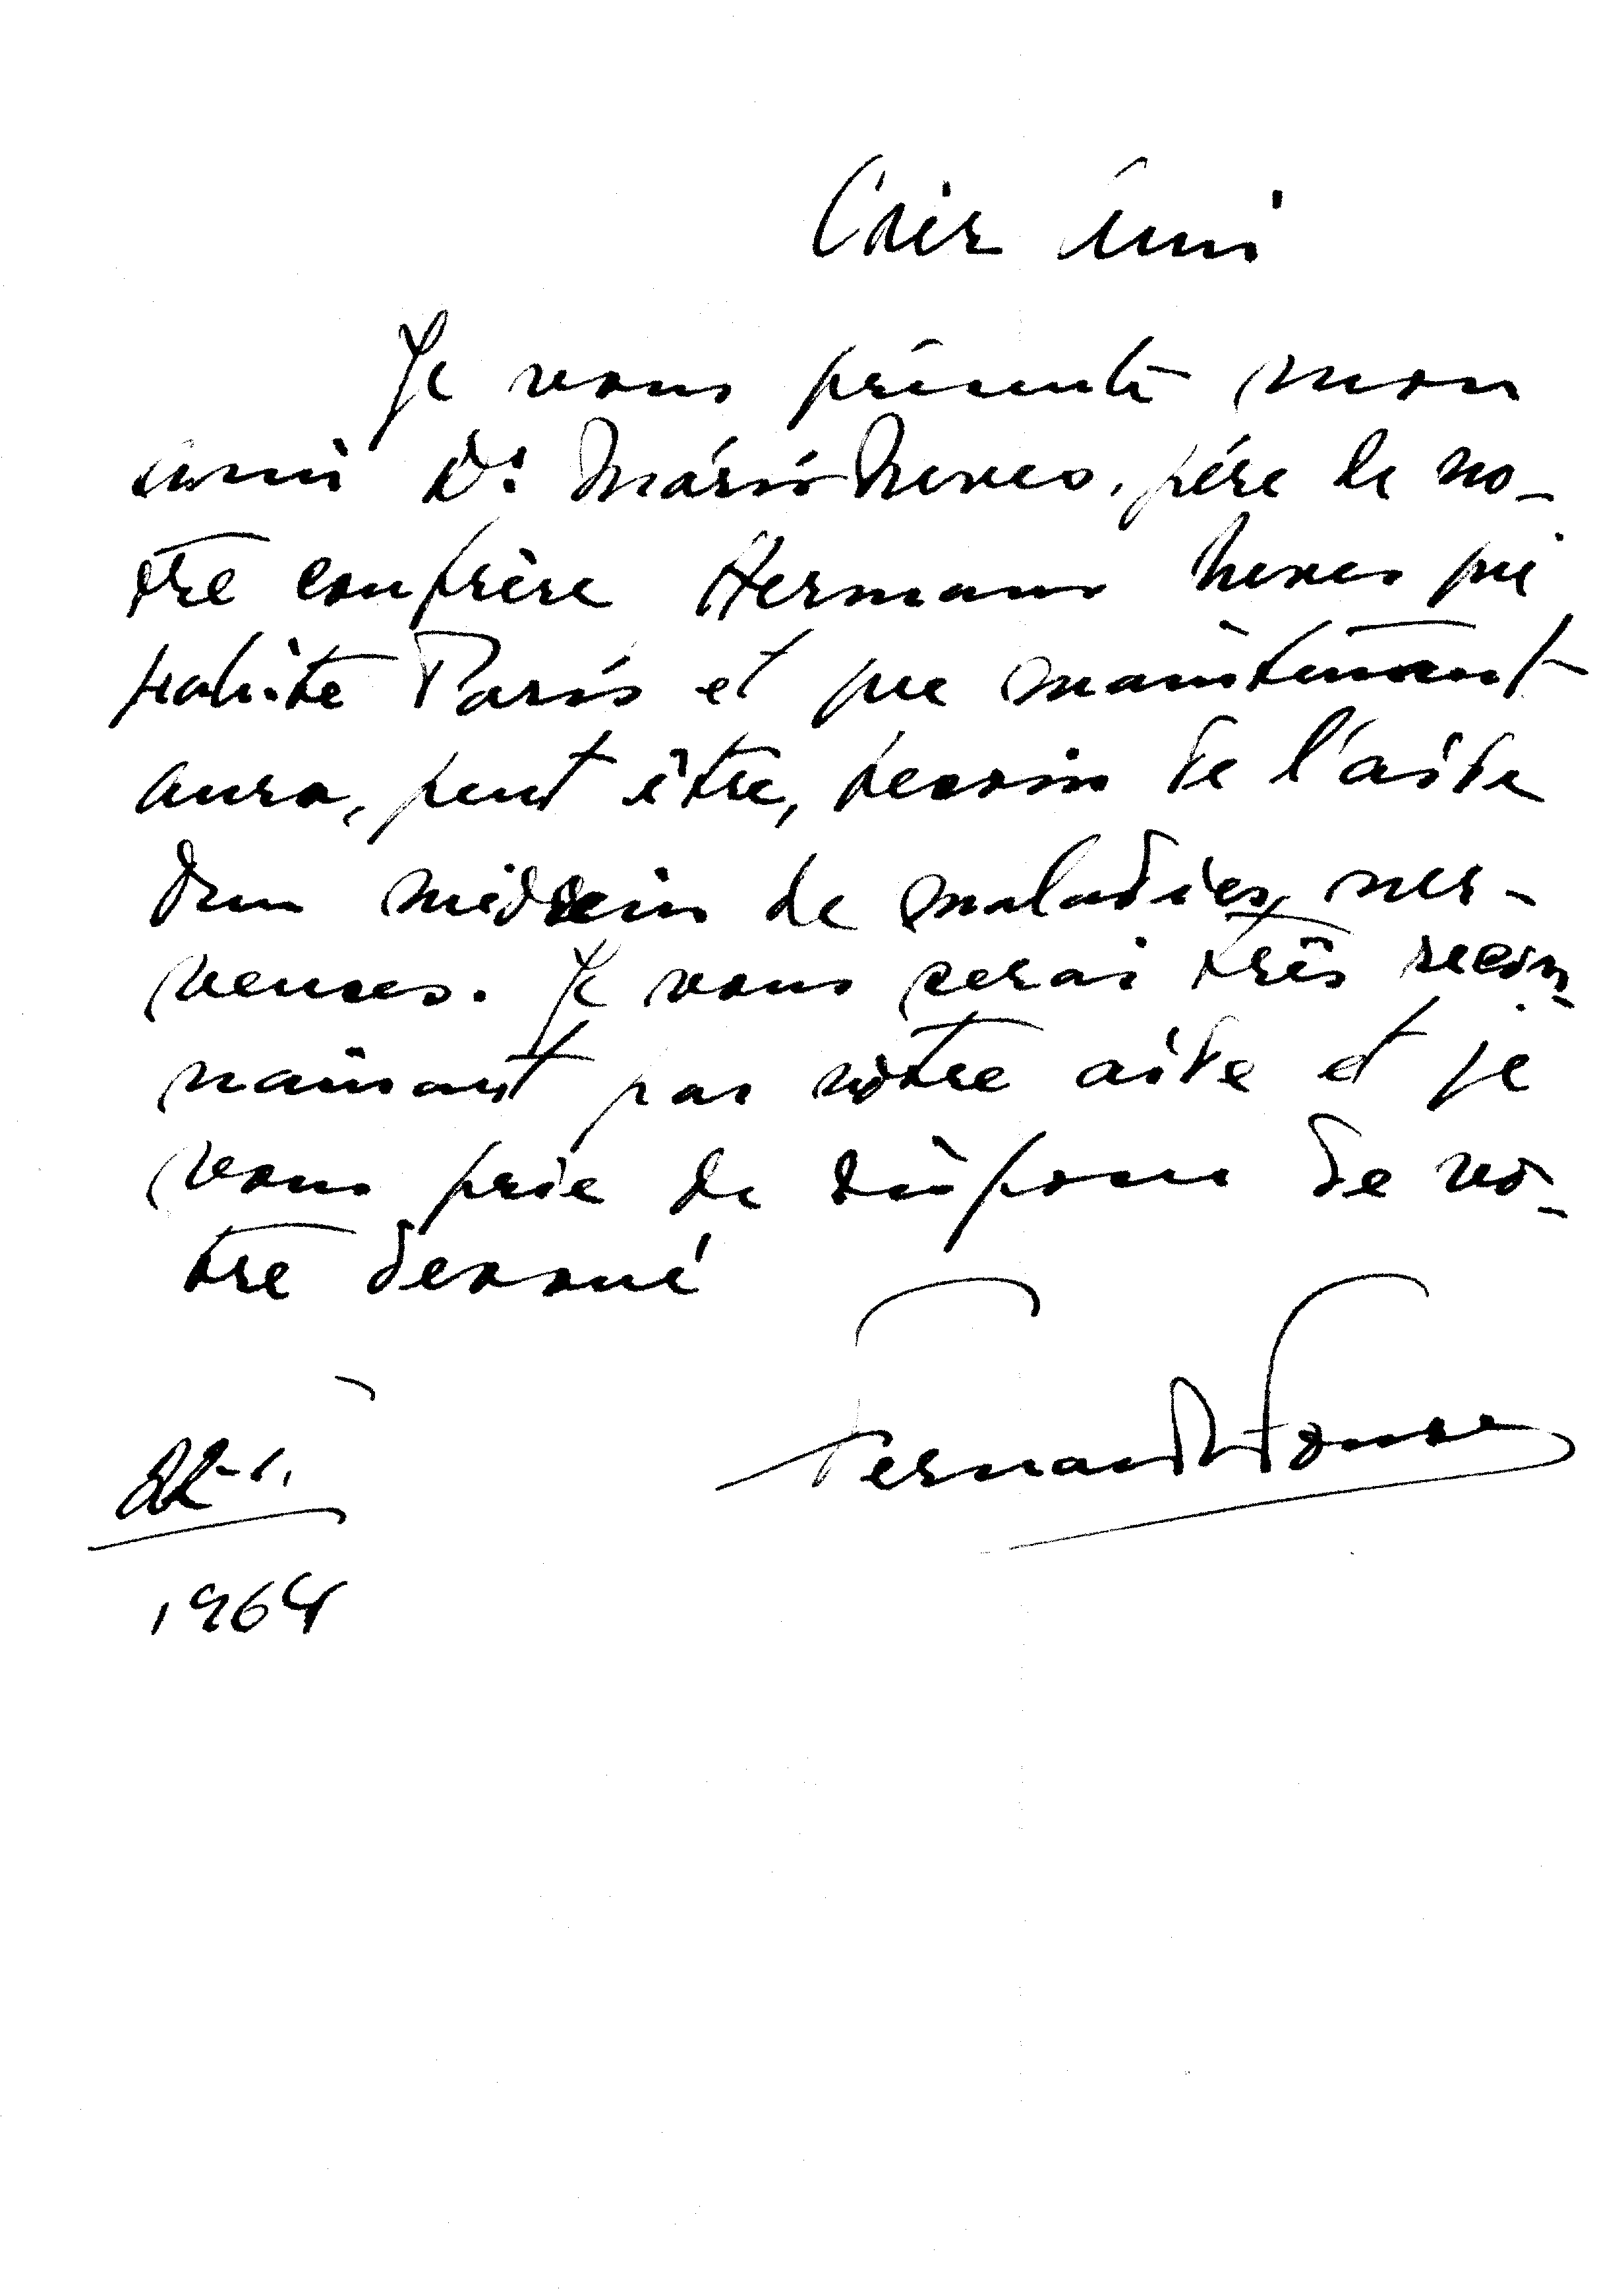 Cher Ami
Je vous présente mon
ami Dr. Mário Neves, père de no-
tre confrère Hermano Neves qui
habite Paris et que maintenant
aura, peut être, besoin de l'aide
d'un médecin de maladies ner-
veuses. Je vous serai très recon-
naissant par vôtre aide et je
vous prie de disposer de vo-
tre devoué
Fernando Fonseca
22-1.
1964